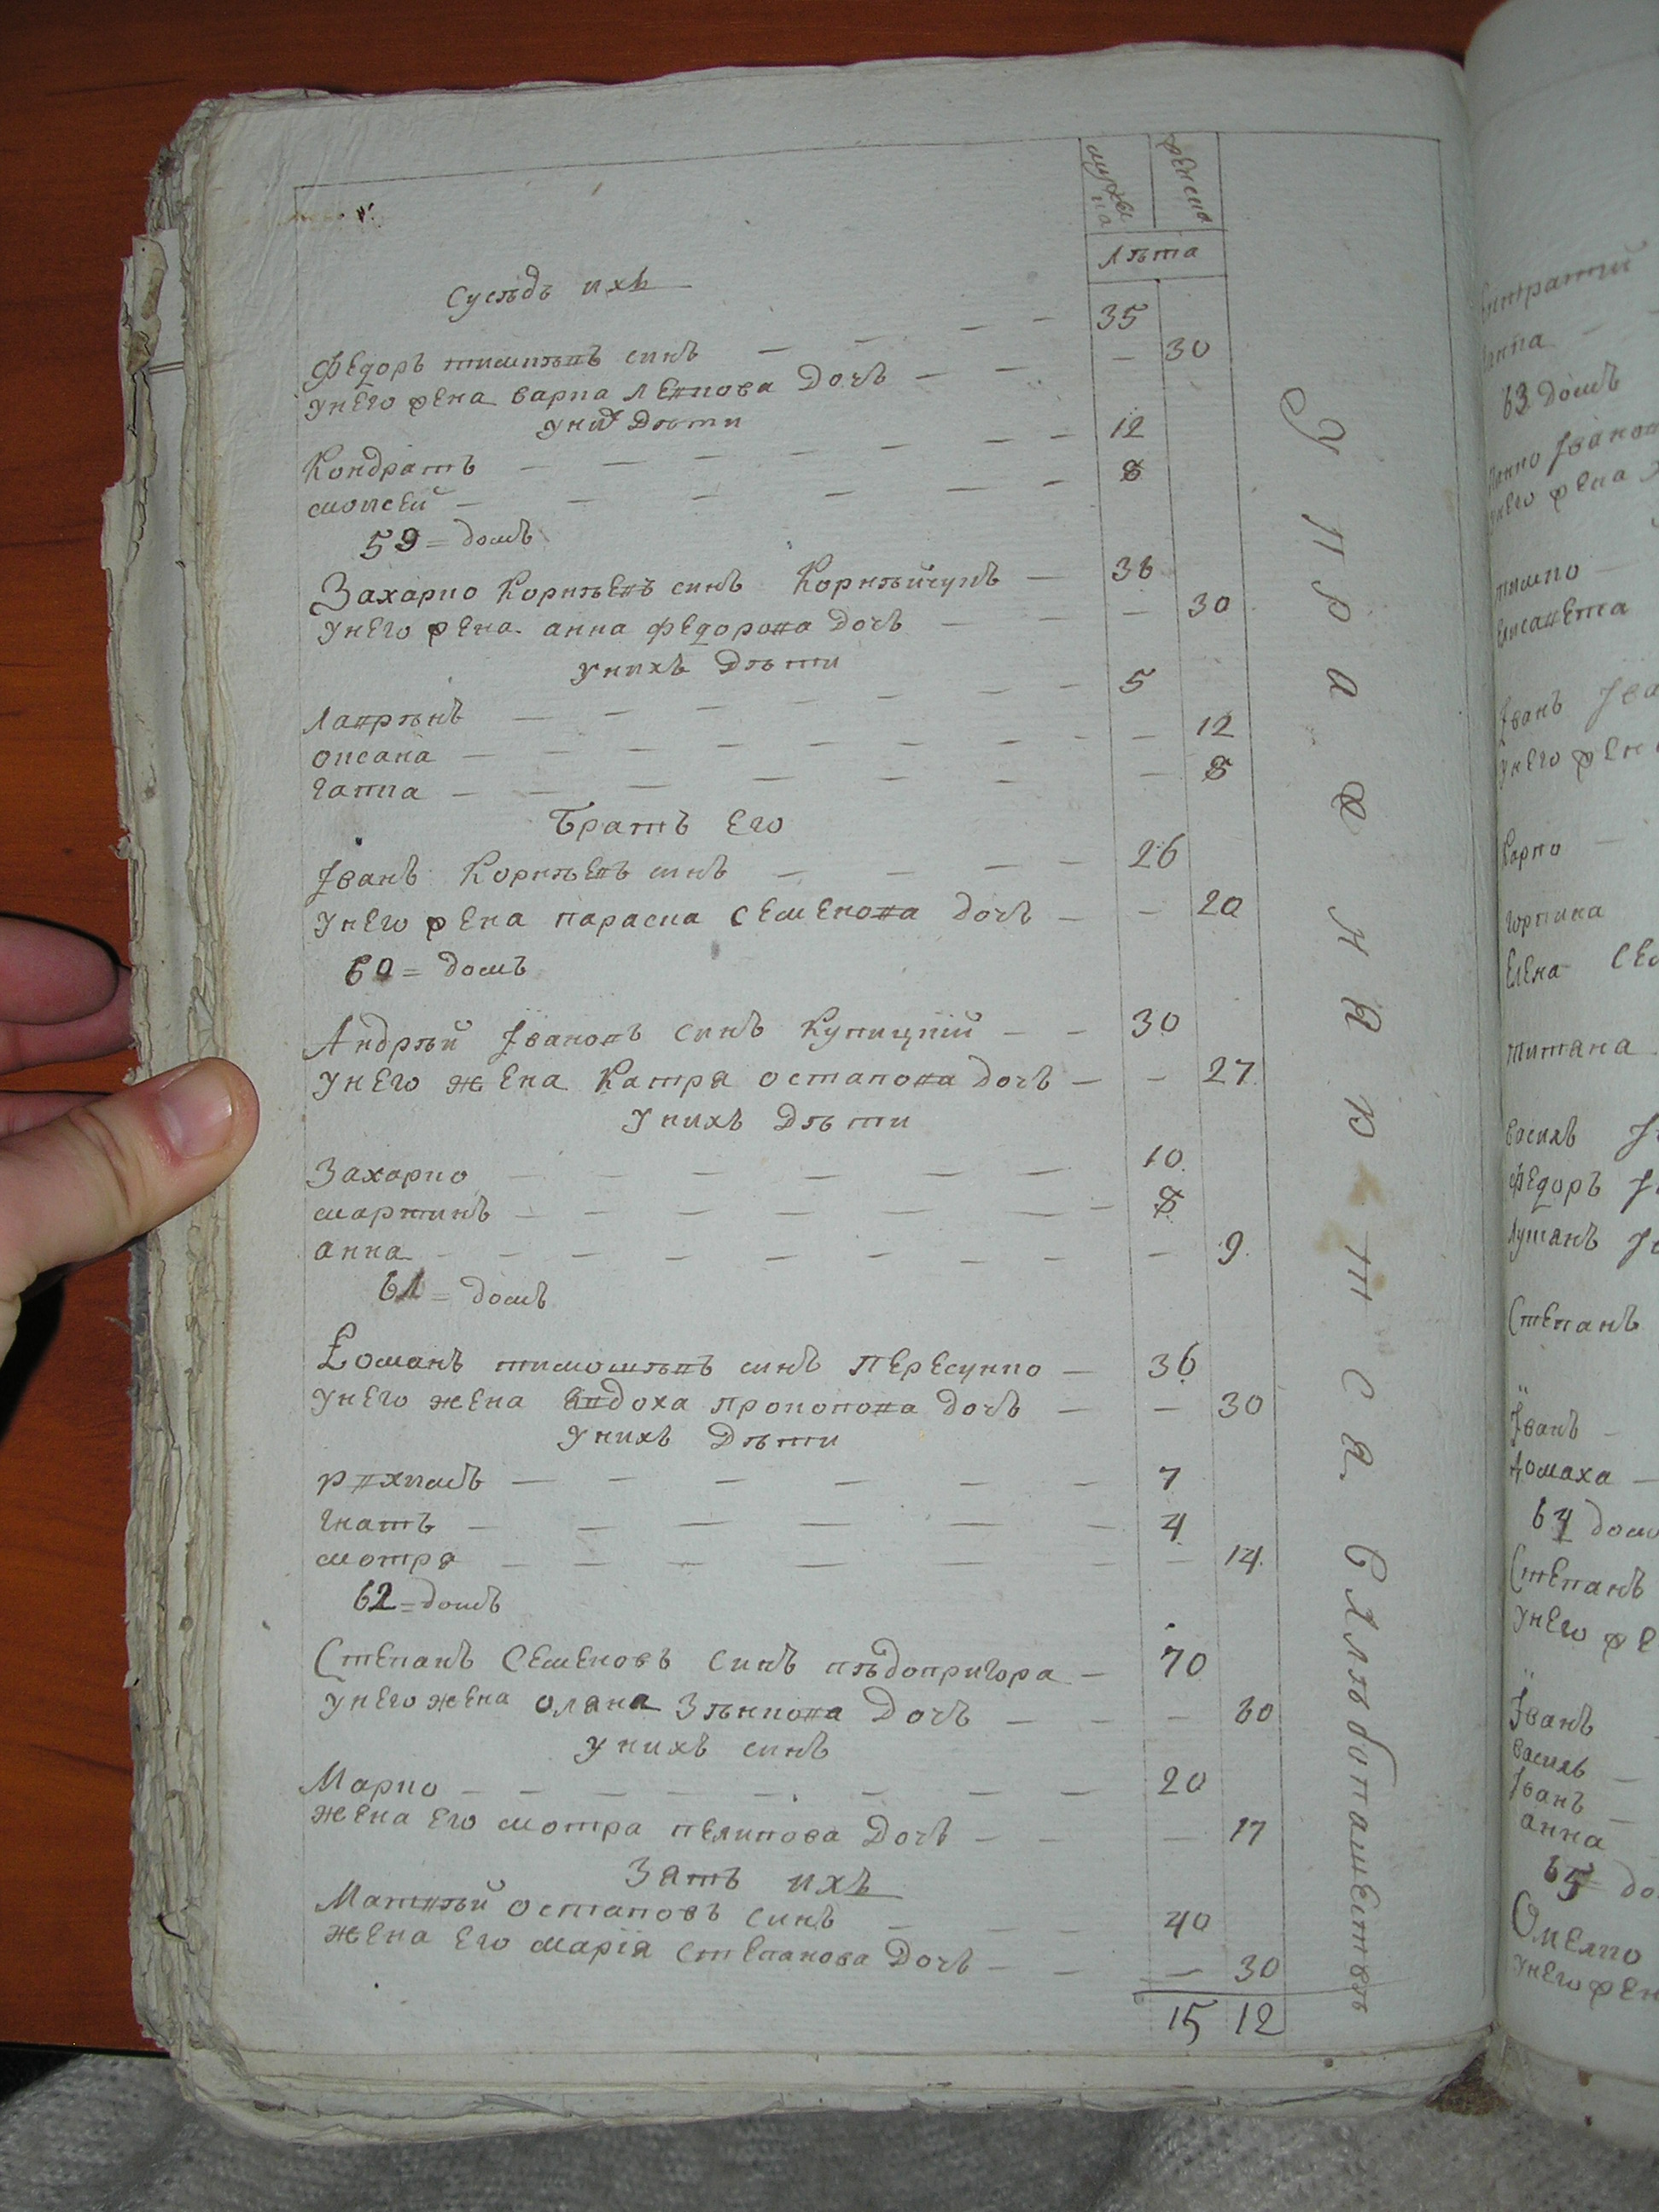 мужеска
женска
лѣта
Сусѣдъ ихъ
Федоръ тимпѣевъ синъ — — — 35
Унего жена варка левкова дочъ — — — 30
Уних дѣти
Кондратъ — — — — — — 12
моисей — — — — — — 8
59 = домъ
Захарко Корнѣевъ синъ Корнѣйчукъ — 36
Унего жена анна федорова дочъ — — — 30
Унихъ дѣти
лаврѣнъ — — — — — — 5
оксана — — — — — — — 12
гапка — — — — — — 8
Братъ его
Іванъ Корнѣевъ синъ — — — — 26
Унего жена параска семенова дочъ — — 20
60 = домъ
Андрѣй Івановъ синъ Купицкій — — 30
Унего жена Катря остапова дочъ — — 27
Унихъ дѣти
Захарко — — — — — — 10
мартинъ — — — — — — 8
анна — — — — — — — 9
61 = домъ
Романъ тимошѣвъ синъ пересунко — 36
Унего жена Явдоха прокопова дочъ — — 30
Унихъ дѣти
якимъ — — — — — 7
гнатъ — — — — — — 4
мотря — — — — — — 14
62 = домъ
Степанъ Семеновъ синъ пѣдопригора — 70
Унего жена оляна Зѣнкова дочъ — — — 60
Унихъ синъ
Марко — — — — — — — 20
жена его мотра пелипова дочъ — — — 17
Зятъ ихъ
Матвѣй остаповъ синъ — — — 40
жена его марія степанова дочъ — — — 30
15 12
Упражняются в хлѣбопашествѣ
63 домъ
тимко
елисавета
Іванъ
Унего жен
Карпо
горпина
елена
василь
федоръ
лукянъ
Степанъ
Іванъ
домаха —
64 дом
Степанъ
Унего же
Іванъ
василь —
Іванъ
анна
65 = до
Омелко
Унего жен